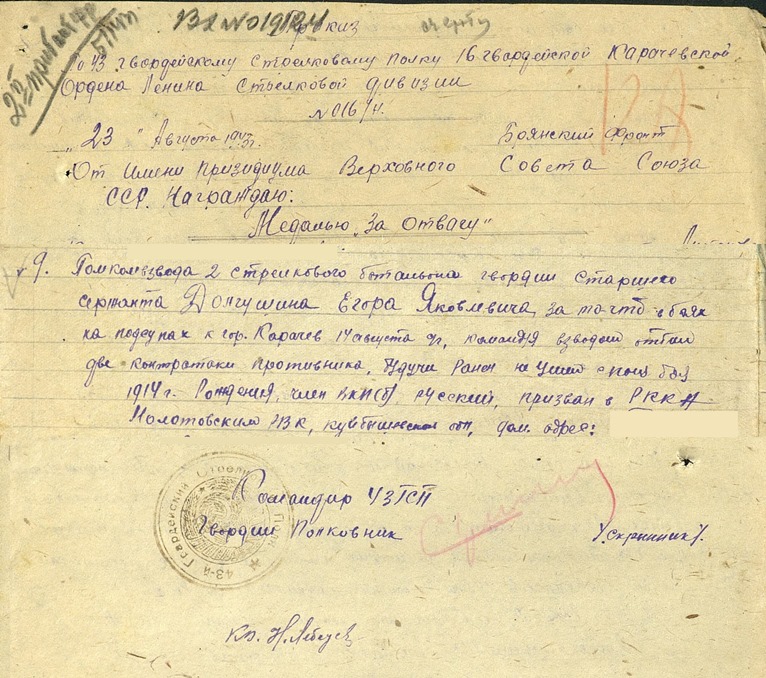 Приказ
По 43 гвардейскому Стрелковому полку 16 гвардейской Карачевской
Ордена Ленина Стрелковой дивизии
№ 016/н.
"23" Августа 1943г. Брянский Фронт
От имени Призидиума Верховного Совета Союза
ССР. Награждаю:
Медалью "За Отвагу"
9. Помкомвзвода 2 стрелкового батальона гвардии старшего
сержанта Долгушина Егора Яковлевича, за то что в боях
на подступах к гор. Карачев 14 августа с/г, командуя взводом отбил
две контратаки противника, будучи ранен не ушел с поля боя
1914 г. Рождения, член ВКП(б), русский, призван в РККА
Молотовским РВК, куйбышевской обл, дом. адрес:
43-й Гвардейский Стрелковый Полк
Командир 43ГСП
Гвардии Полковник